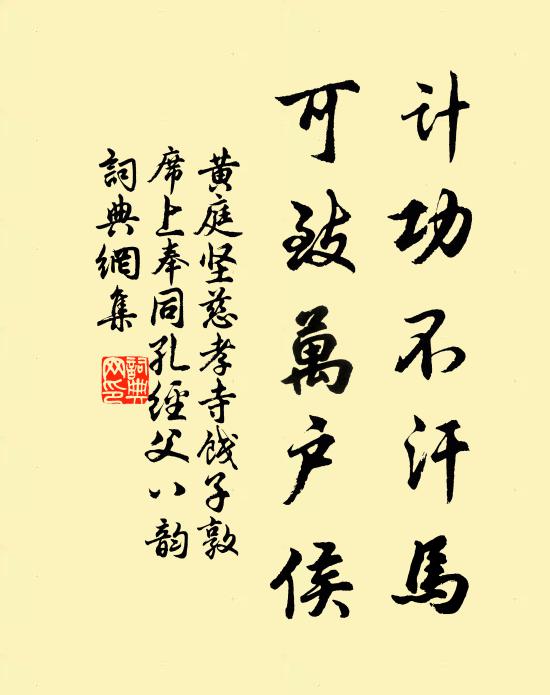 计功不汗馬
可致萬户侯
黄庭坚慈孝寺饯子敦
席上奉同孔经父八韵
詞典網集
詞典網印